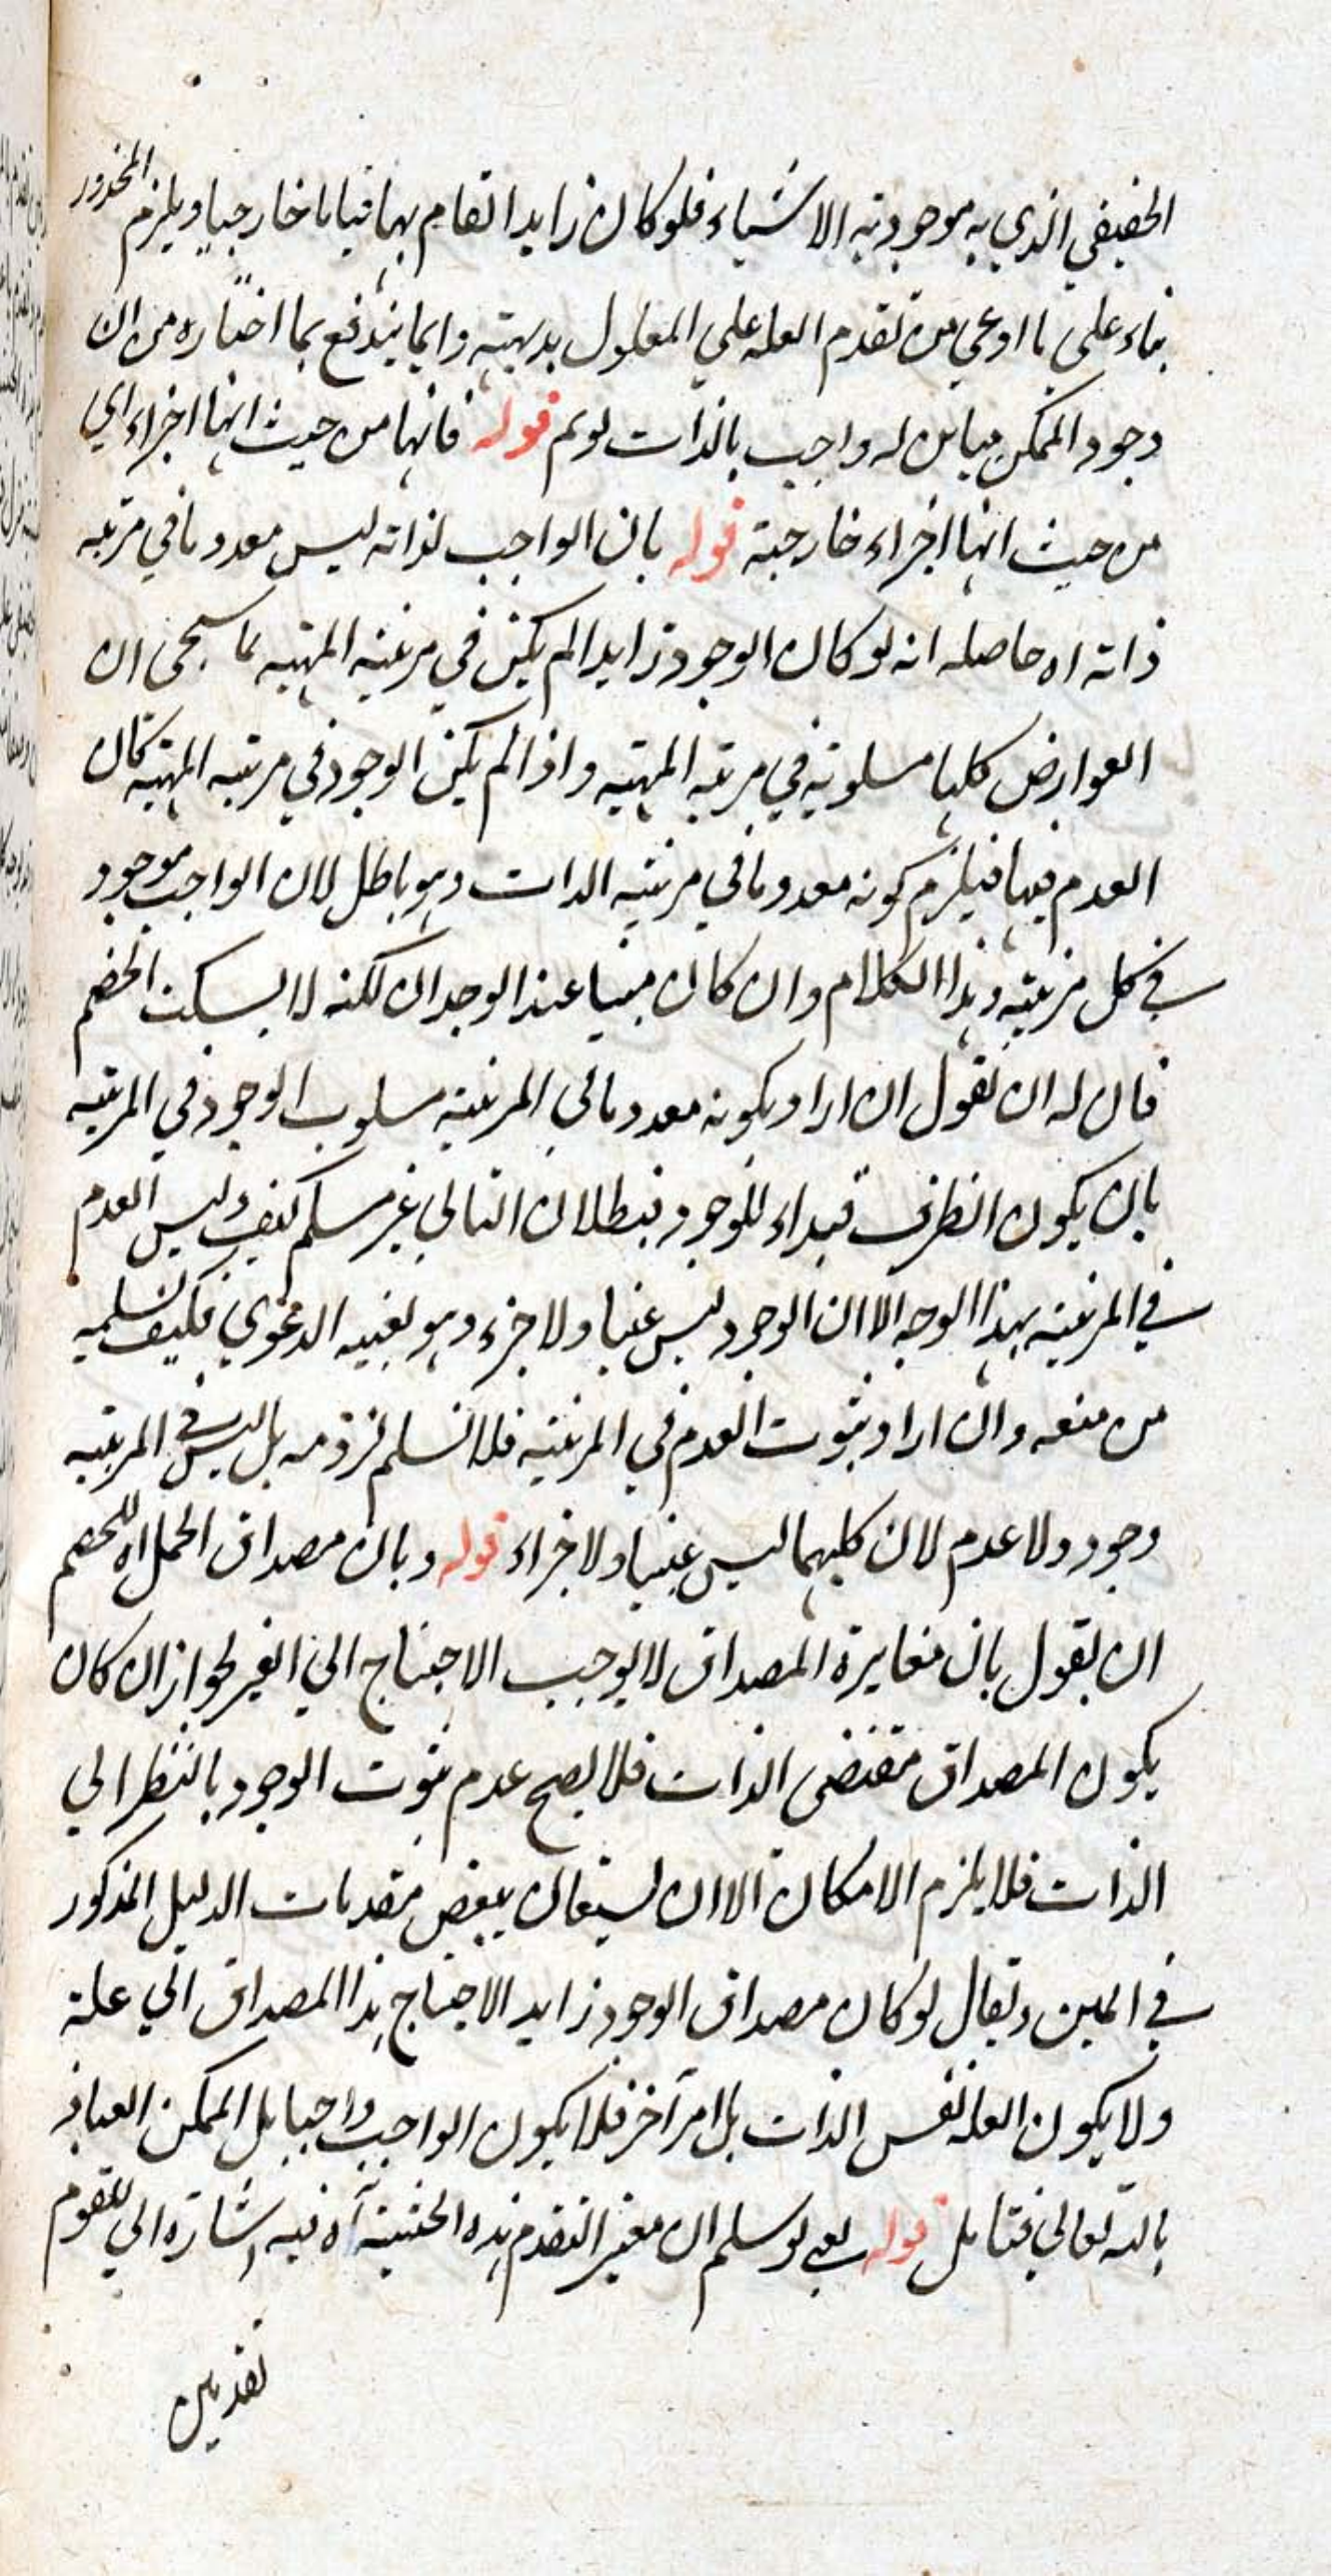 الحقيقي الذي به موجودية الاشياء فلو كان زايدا لقام بها قياما خارجيا ويلزم المحذور
بناء على ما ادعى من تقدم العلة على المعلول بديهة وانما يندفع بما اختاره من ان
وجود الممكن مباين له واجب بالذات لو تم قوله فانها من حيث انها اجزاء اي
من حيث انها اجزاء خارجية قوله بان الواجب لذاته ليس معدوما في مرتبة
ذاته اه حاصله انه لو كان الوجود زايدا لم يكن في مرتبة المهية لما سيجئ ان
العوارض كلها مسلوبة في مرتبة المهية واذا لم يكن الوجود في مرتبة المهية كان
العدم فيها فيلزم كونه معدوما في مرتبة الذات وهو باطل لان الواجب موجود
في كل مرتبة وهذا الكلام وان كان مبنيا عند الوجدان لكنه لا يسكت الخصم
فان له ان يقول ان اراد بكونه معدوما في المرتبة مسلوب الوجود في المرتبة
بان يكون الظرف قيدا للوجود فبطلان التالي غير مسلم كيف وليس العدم
في المرتبة بهذا الوجه الا ان الوجود ليس عينا ولا جزء وهو بعينه الدعوي فكيف نسلمه
من منعه وان اراد ثبوت العدم في المرتبة فلا نسلم لزومه بل ليس في المرتبة
وجود ولا عدم لان كليهما ليس عينا ولا جزاء قوله وبان مصداق الحمل اه للخصم
ان يقول بان مغايرة المصداق لا يوجب الاحتياج الي الغير لجواز ان كان
يكون المصداق مقتضى الذات فلا يصح عدم ثبوت الوجود بالنظر الي
الذات فلا يلزم الامكان الا ان يستعان ببعض مقدمات الدليل المذكور
في المتن ويقال لو كان مصداق الوجود زايدا لاحتاج هذا المصداق الي علة
ولا يكون العلة نفس الذات بل امر آخر فلا يكون الواجب واجبا بل الممكن العياذ
بالله تعالي فتامل قوله يعني لو سلم ان معني التقدم هذه الحيثية آه فيه اشارة الي للقوم
تقديرين